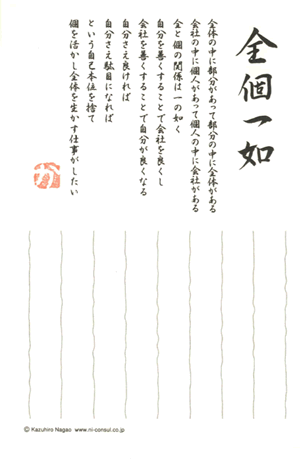 全個一如
全体の中に部分があって部分の中に全体がある
会社の中に個人があって個人の中に会社がある
全と個の関係は一の如く
自分を善くすることで会社を良くし
会社を善くすることで自分が良くなる
自分さえ良ければ
自分さえ駄目になれば
という自己本位を捨て
個を活かし全体を生かす仕事がしたい
か
© Kazuhiro Nagao www.ni-consul.co.jp